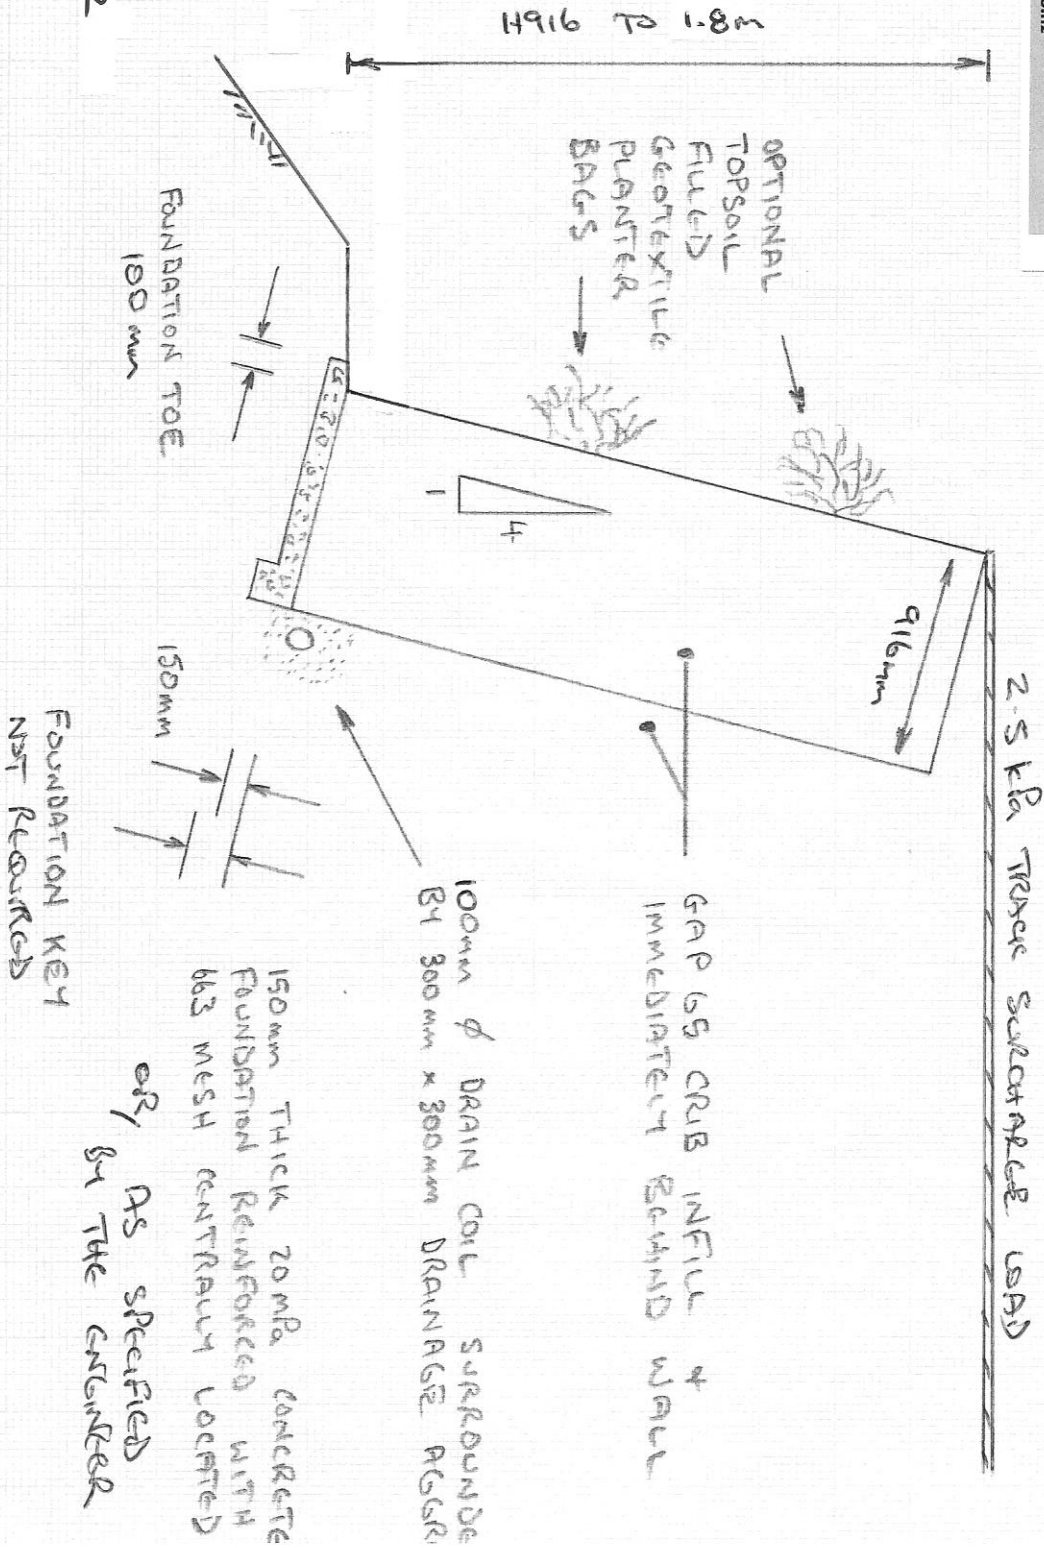 H916 TO 1.8m
2.5 kPa TRACK SURCHARGE LOAD
OPTIONAL
TOPSOIL
FILLED
GEOTEXTILE
PLANTER
BAGS
916mm
4
1
GAP 65 CRIB INFILL &
IMMEDIATELY BEHIND WALL
100mm ø DRAIN COIL SURROUNDE
BY 300mm x 300mm DRAINAGE AGGR
FOUNDATION TOE
100mm
150mm
150mm THICK 20MPa CONCRETE
FOUNDATION REINFORCED WITH
663 MESH CENTRALLY LOCATED
OR, AS SPECIFIED
BY THE ENGINEER
FOUNDATION KEY
NOT REQUIRED